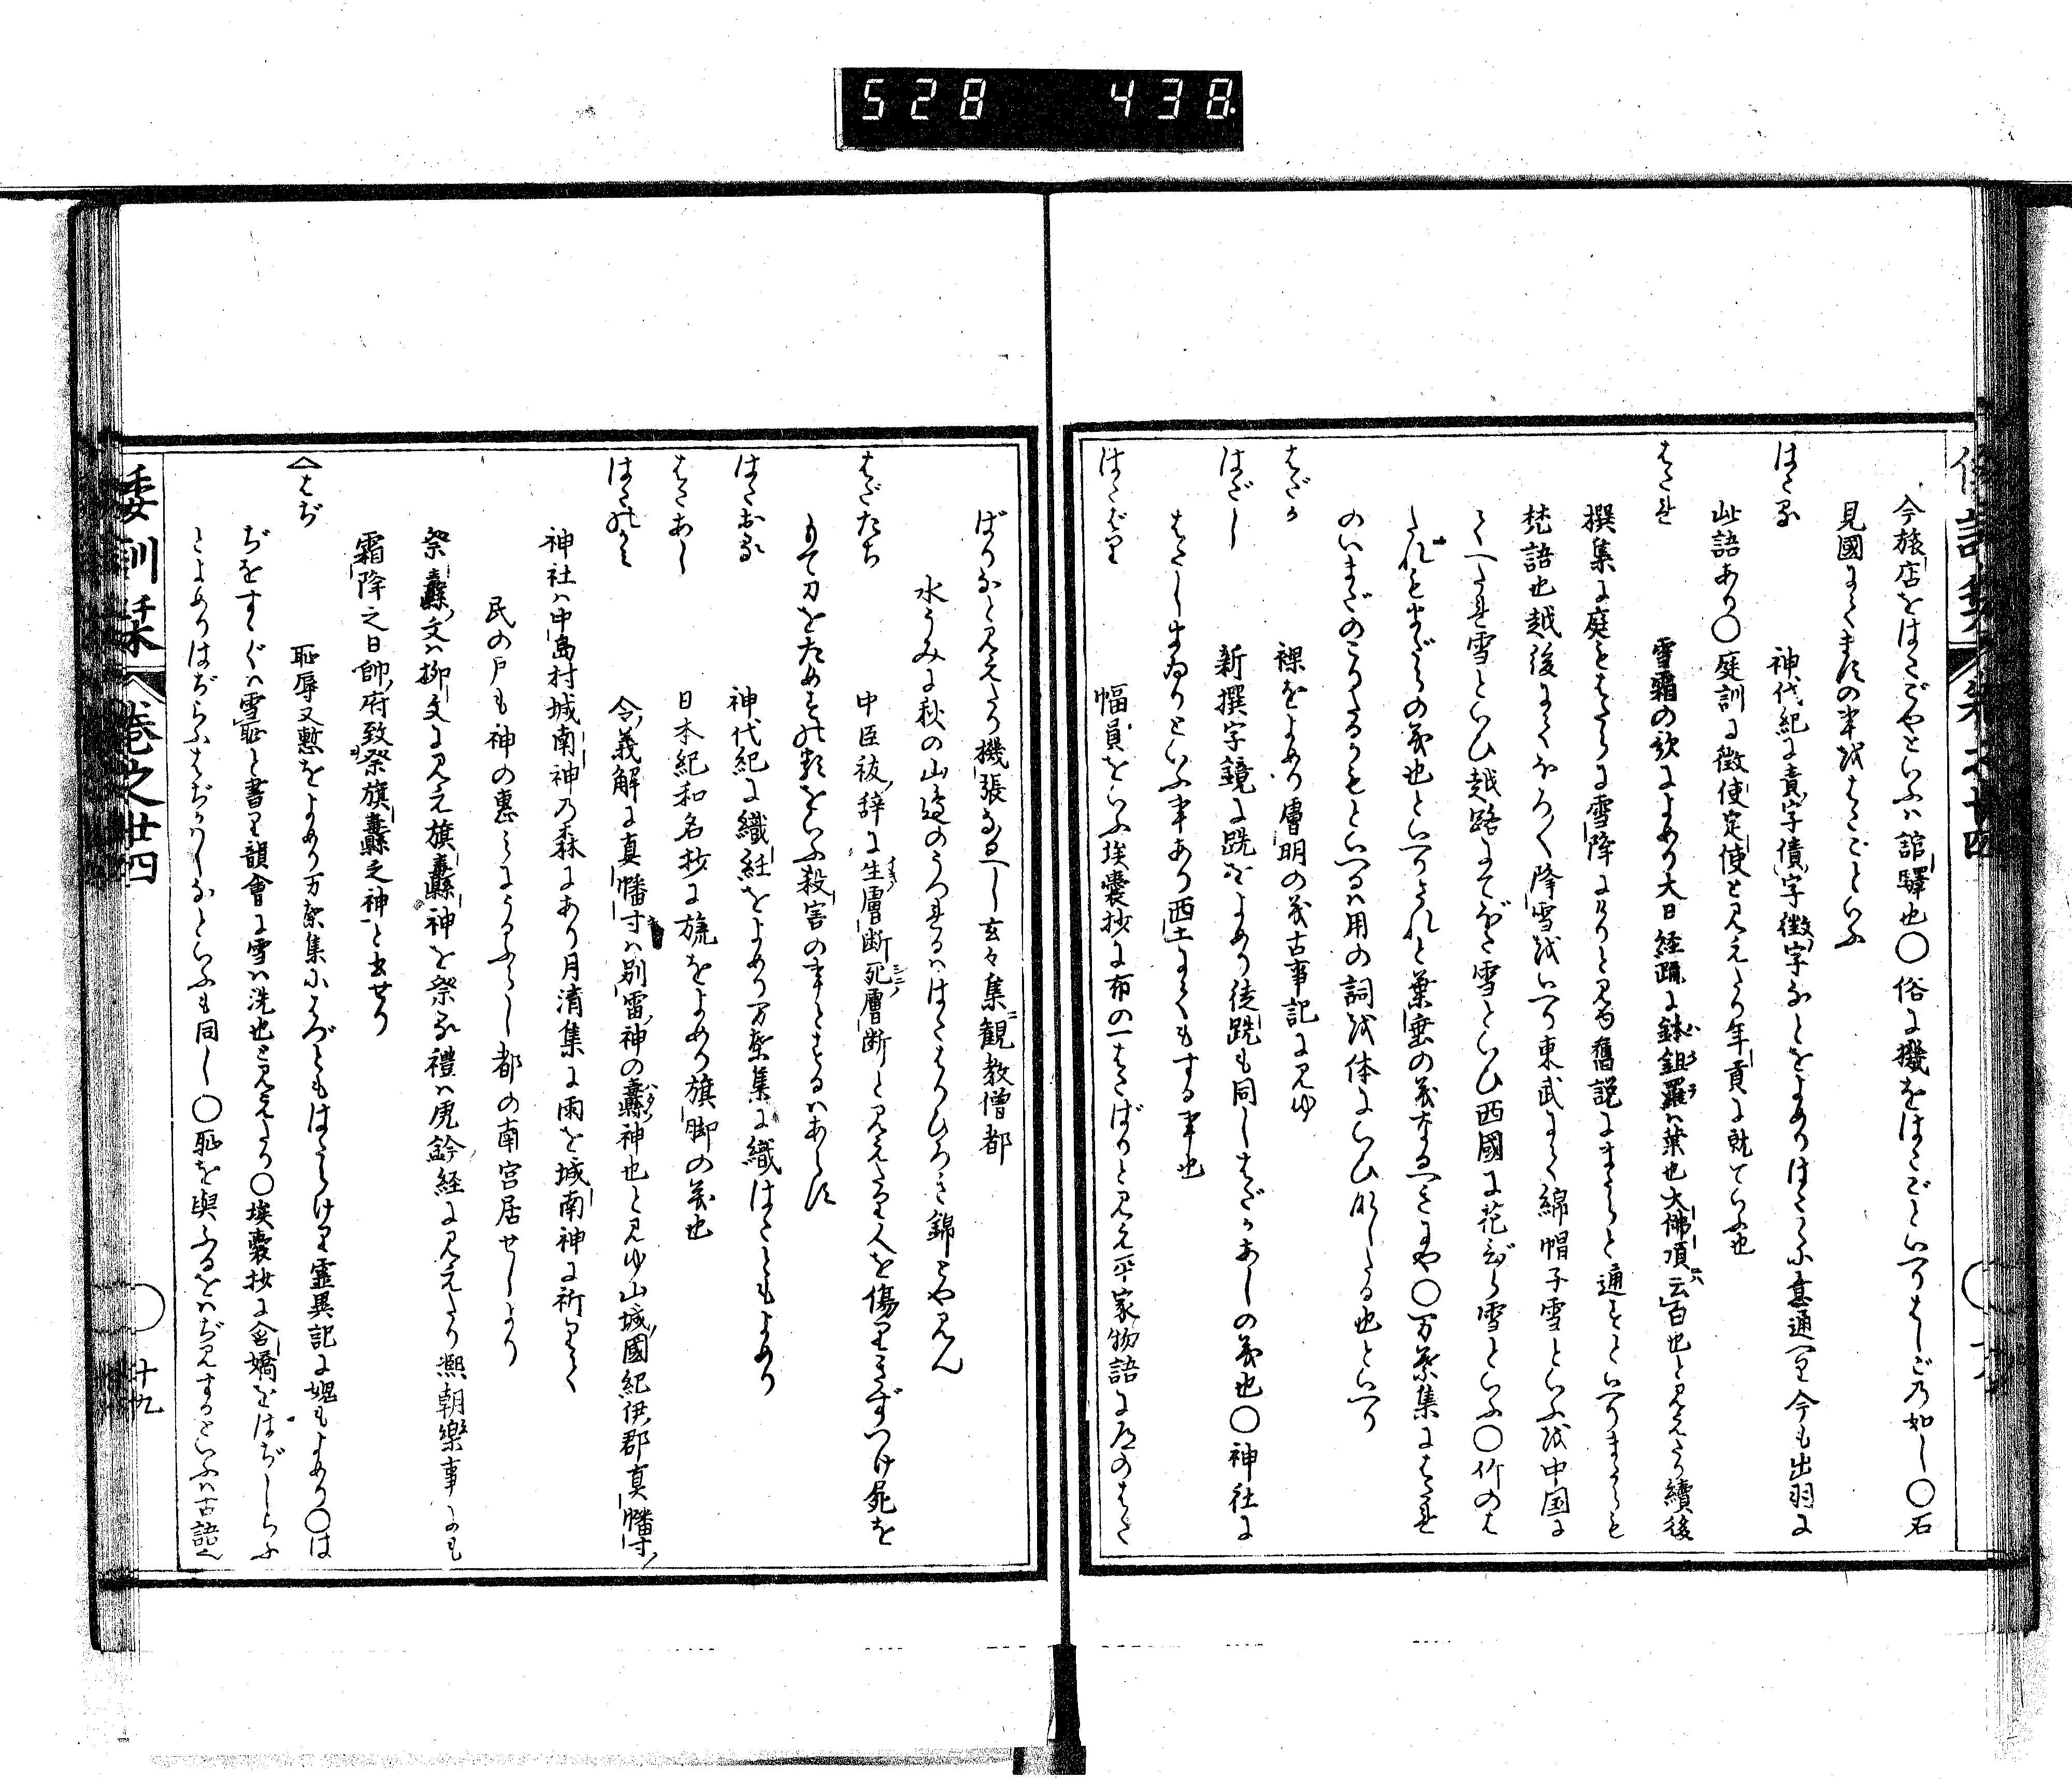 528 438
今旅店をはたごやといふハ舘驛也〇俗に機をはたごといへりはしごの如し〇石
見國にてきれの事をはたごといふ
はたる 神代紀に責字債字徴字などをよめりはたくに甚通へり今も出羽に
此語あり〇庭訓に徴使定使と見えたり年貢に就ていふ也
はたれ 雪霜の歌によめり大日経疏に鉢怛羅ハ葉也大佛頂云百也と見えたり續後
撰集に庭もはたらに雪降にけりと見ゆ舊説にまたらと通すといへりまたらも
梵語也越後にてハあらく降雪をいへり東武にて綿帽子雪といふを中国に
たれもまだらの義也といへりされと葉垂の義なるへきにや〇万葉集にはたれ
のいまだのこりたるかもといへるハ用の詞を体にいひなしたる也といへり
はだか 裸をよめり膚明の義古事記に見ゆ
はだし 新撰字鏡に跣をよめり徒跣も同しはだかあしの義也〇神社に
はだしまゐりといふ事あり西土にてもする事也
はたばり 幅員をいふ埃嚢抄に布の一はたばりと見え平家物語に
ばりなと見えたり機張なるへし玄々集観教僧都
水うみに秋の山邊のうつれるハはたはりひろき錦とや見ん
はだたち 中臣祓辞に生膚断死膚断と見えたるは人を傷りきずつけ屍を
もて刀をためすの類をいふ殺害の事とするハあしゝ
はたおる 神代紀に織絍をよめり万葉集に織はたともよめり
はたあし 日本紀和名抄に旒をよめり旗脚の義也
はたのかみ 令義解に真幡寸ハ別雷神の纛神也と見ゆ山城國紀伊郡真幡寸
神社ハ中島村城南神乃森にあり月清集に雨を城南神に祈りて
民の戸も神の恵ミにうるふらし都の南宮居せしより
祭纛文ハ柳文に見え旗纛神を祭る禮ハ虎鈐経に見えたり熈朝樂事にも
霜降之日帥府致祭旗纛之神と書せり
はぢ 恥辱又慙をよめり万葉集にはづともはたらけり霊異記に媿もよめり〇は
ぢをすゝぐハ雪恥と書り韻會に雪ハ洗也と見えたり〇埃嚢抄に含嬌をはぢしらふ
とよめりはぢらふはぢかハしなといふも同し〇恥を與ふるをはぢ見するといふハ古語也
倭訓栞 巻之廿四 〇 十九